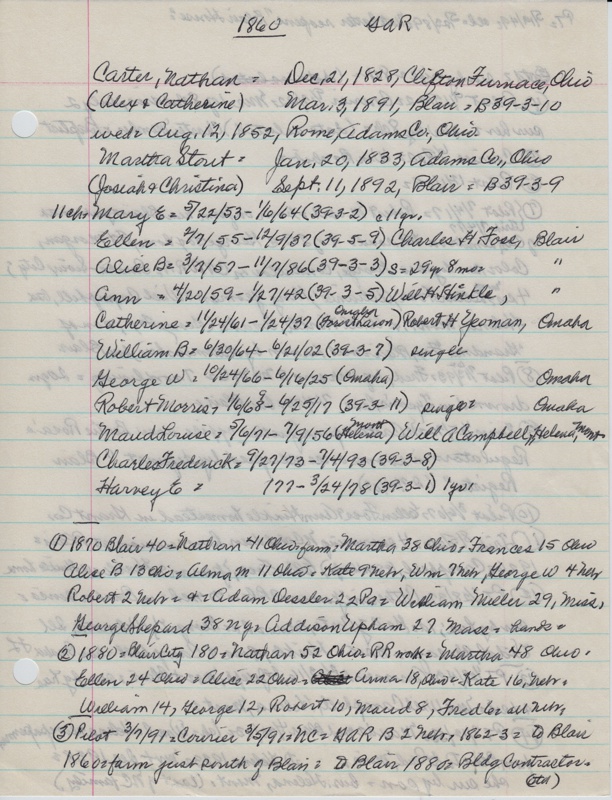 1860 GAR
Carter, Nathan = Dec. 21, 1828, Clifton Furnace, Ohio
(Alex & Catherine) Mar. 3, 1891, Blair = B39-3-10
wed = Aug. 12, 1852, Rome, Adams Co., Ohio
Martha Stout = Jan. 20, 1833, Adams Co., Ohio
(Josiah & Christina) Sept. 11, 1892, Blair = B39-3-9
11 chr Mary E = 5/22/53 - 1/6/64 (39-3-2) 11 yr.
Ellen = 2/7/55 - 12/9/37 (39-5-9) Charles H Foss, Blair
Alice B = 3/7/57 - 11/7/86 (39-3-3) S = 29 yr 8 mos "
Ann = 4/20/59 - 1/27/42 (39-3-5) Will H Hinkle, "
Catherine = 11/24/61 - 1/24/37 (Omaha) Robert H Yeoman, Omaha
William B = 6/20/64 - 6/21/02 (39-3-7) single
George W = 10/24/66 - 6/16/25 (Omaha) Omaha
Robert Morris = 1/6/68 - 9/25/17 (39-3-11) single = Omaha
Maud Louise = 5/6/71 - 7/9/56 (Helena, Mont) Will A Campbell, Helena, Mont
Charles Frederick = 9/27/73 - 7/4/93 (39-3-8)
Harvey E = 177 - 3/24/78 (39-3-1) 1 yr.
① 1870 Blair 40 = Nathan 41 Ohio = farm = Martha 38 Ohio = Frances 15 Ohio
Alice B 13 Ohio = Alma M 11 Ohio = Kate 9 Nebr, Wm 7 Nebr, George W 4 Nebr
Robert 2 Nebr = & = Adam Oessler 22 Pa = William Miller 29, Miss,
George Shepard 38 Ny = Addison Upham 27 Mass = hands =
② 1880 = Blair City 180 = Nathan 52 Ohio = RR work = Martha 48 Ohio =
Ellen 24 Ohio = Alice 22 Ohio = Anna 18, Ohio = Kate 16, Nebr =
William 14, George 12, Robert 10, Maud 8, Fred 6 = all Nebr,
③ Pilot 3/7/91 = Courier 3/5/91 = NC = GAR B 2 Nebr = 1862-3 = To Blair
1860 = farm just south of Blair = To Blair 1880 = Bldg Contractor =